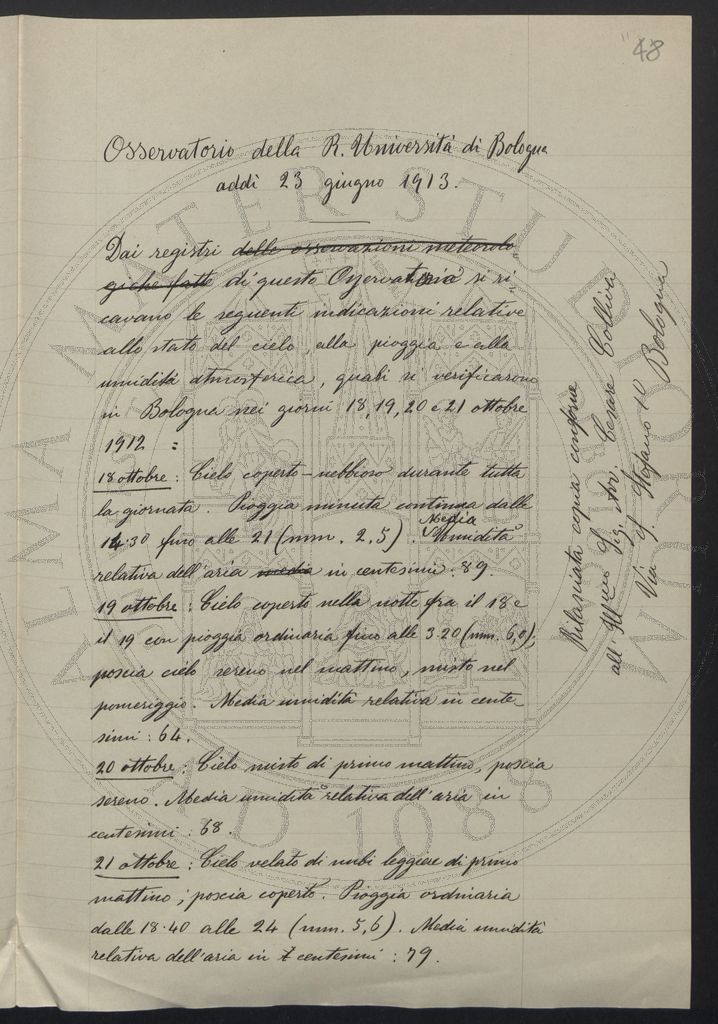 "48
Osservatorio della R. Università di Bologna
addì 23 giugno 1913.
Dai registri delle osservazioni meteorolo-
giche fatte di questo Osservatorio si ri-
cavano le seguenti indicazioni relative
allo stato del cielo, alla pioggia e alla
umidità atmosferica, quali si verificarono
in Bologna nei giorni 18, 19, 20 e 21 ottobre
1912 :
18 ottobre : Cielo coperto-nebbioso durante tutta
la giornata. Pioggia minuta continua dalle
14.30 fino alle 21 (mm. 2,5). Media Umidità
relativa dell'aria media in centesimi : 89.
19 ottobre : Cielo coperto nella notte fra il 18 e
il 19 con pioggia ordinaria fino alle 3.20 (mm. 6,0),
poscia cielo sereno nel mattino, misto nel
pomeriggio. Media umidità relativa in cente-
simi : 64.
20 ottobre : Cielo misto di primo mattino, poscia
sereno. Media umidità relativa dell'aria in
centesimi : 68.
21 ottobre : Cielo velato di nubi leggiere di primo
mattino ; poscia coperto. Pioggia ordinaria
dalle 18.40 alle 24 (mm. 5,6). Media umidità
relativa dell'aria in centesimi : 79.
Rilasciata copia conforme
all' Ill.mo Sig. Avv. Cesare Colliva
Via S. Stefano 10 Bologna
ALMA MATER STUDIORUM
A.D. 1088